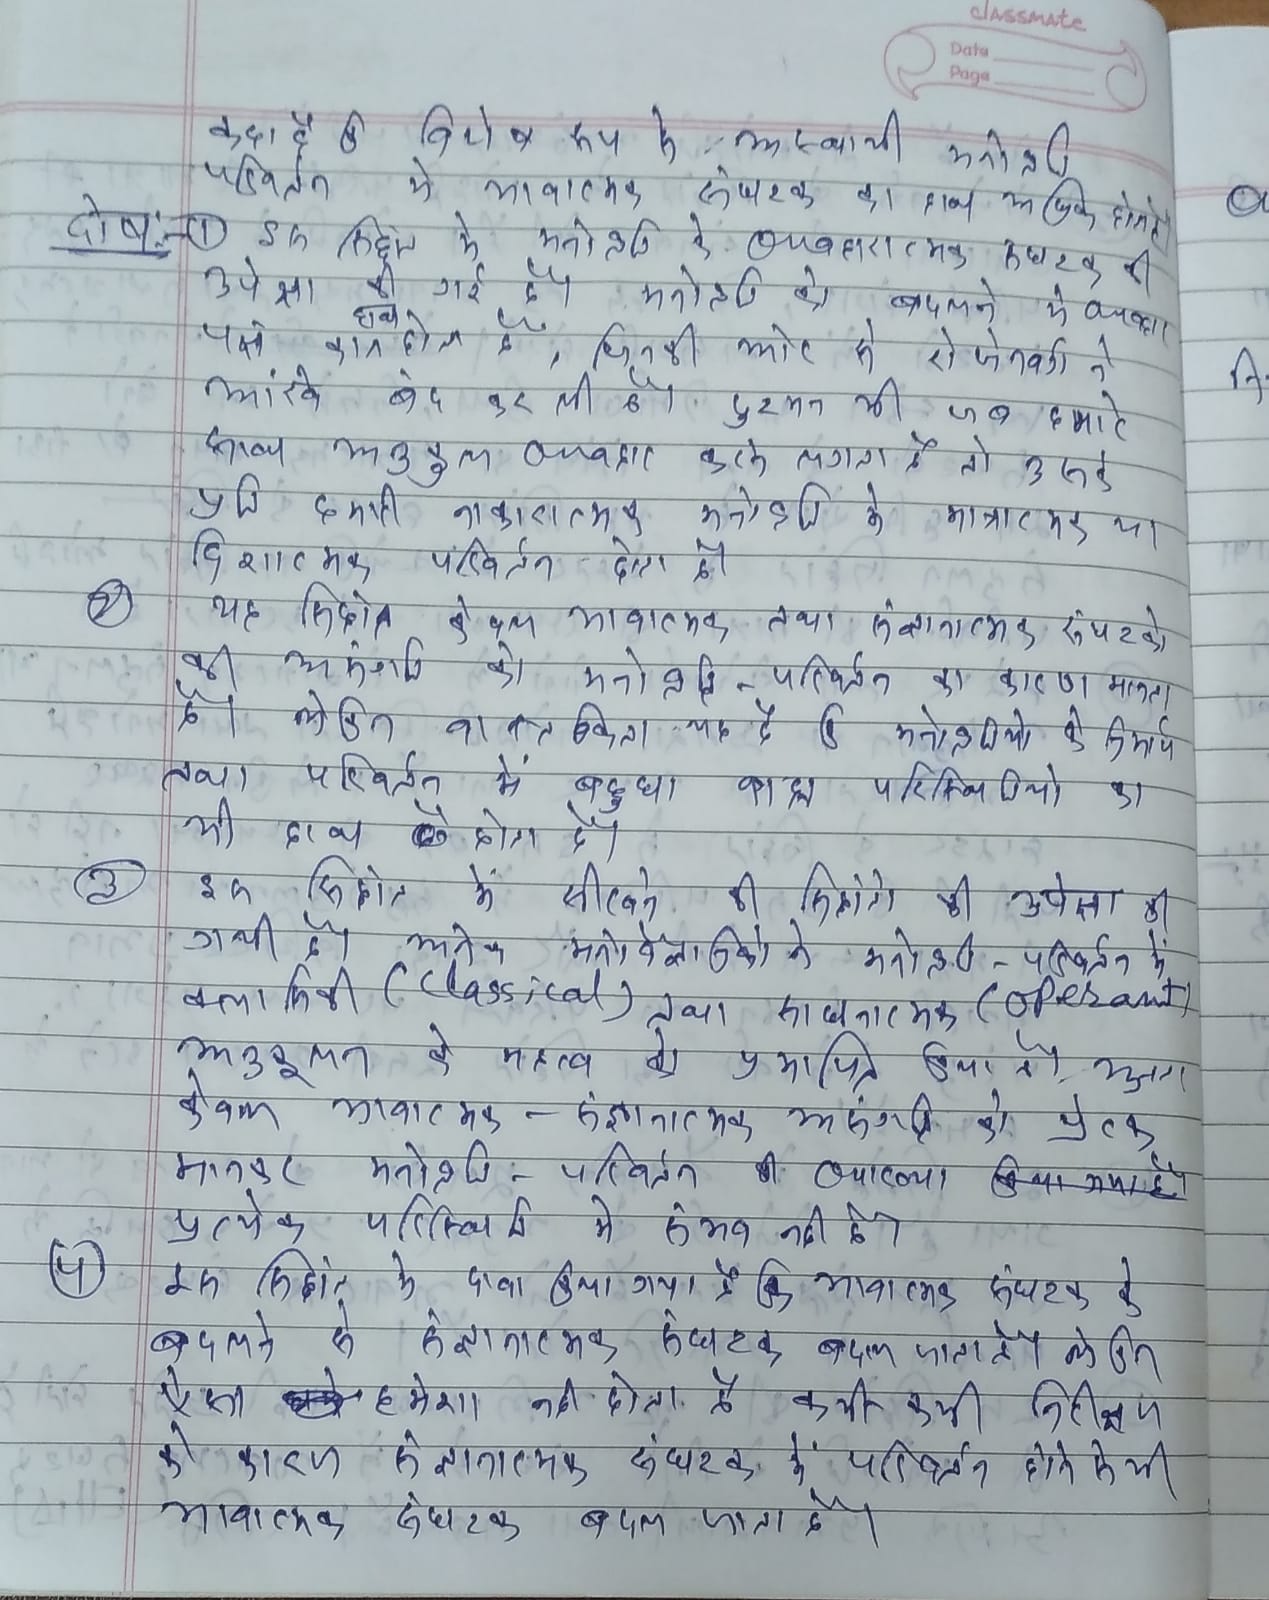 classmate
Date
Page
कहा है कि विशेष रूप से अस्थायी मनोवृत्ति
परिवर्तन में भावात्मक संघटक का हाथ अधिक होता है।
दोष:- ① इस सिद्धांत में मनोवृत्ति के व्यवहारात्मक संघटक की
उपेक्षा की गई है। मनोवृत्ति को बदलने में व्यवहार
हाथ होता है, जिनकी ओर से रोजेनवर्ग ने
आंखे बंद कर ली है। दुश्मन भी जब हमारे
साथ अनुकूल व्यवहार करने लगता है तो उसके
प्रति हमारी नाकारात्मक मनोवृत्ति में मात्रात्मक या
दिशात्मक परिवर्तन होता है।
② यह सिद्धांत केवल भावात्मक तथा संज्ञानात्मक संघटको
की असंगति को मनोवृत्ति - परिवर्तन का कारण मानता
है। लेकिन वास्तविकता यह है कि मनोवृत्तियो के निर्माण
तथा परिवर्तन में बहुधा बाह्य परिस्थितियो का
भी हाथ होता है।
③ इस सिद्धांत में सीखने की सिद्धांतो की उपेक्षा की
गयी है। अनेक मनोवैज्ञानिको ने मनोवृत्ति - परिवर्तन में
क्लासिकी (Classical) तथा साधनात्मक (operant)
अनुकूलन के महत्व को प्रमाणित किया है। अतः
केवल भावात्मक - संज्ञानात्मक असंगति को प्रेरक
मानकर मनोवृत्ति - परिवर्तन की व्याख्या
प्रत्येक परिस्थिति में संभव नही है।
④ इस सिद्धांत में दावा किया गया है कि भावात्मक संघटक के
बदलने से संज्ञानात्मक संघटक बदल जाता है। लेकिन
ऐसा हमेशा नही होता है कभी कभी निरीक्षण
के कारण संज्ञानात्मक संघटक में परिवर्तन होने से भी
भावात्मक संघटक बदल जाता है।